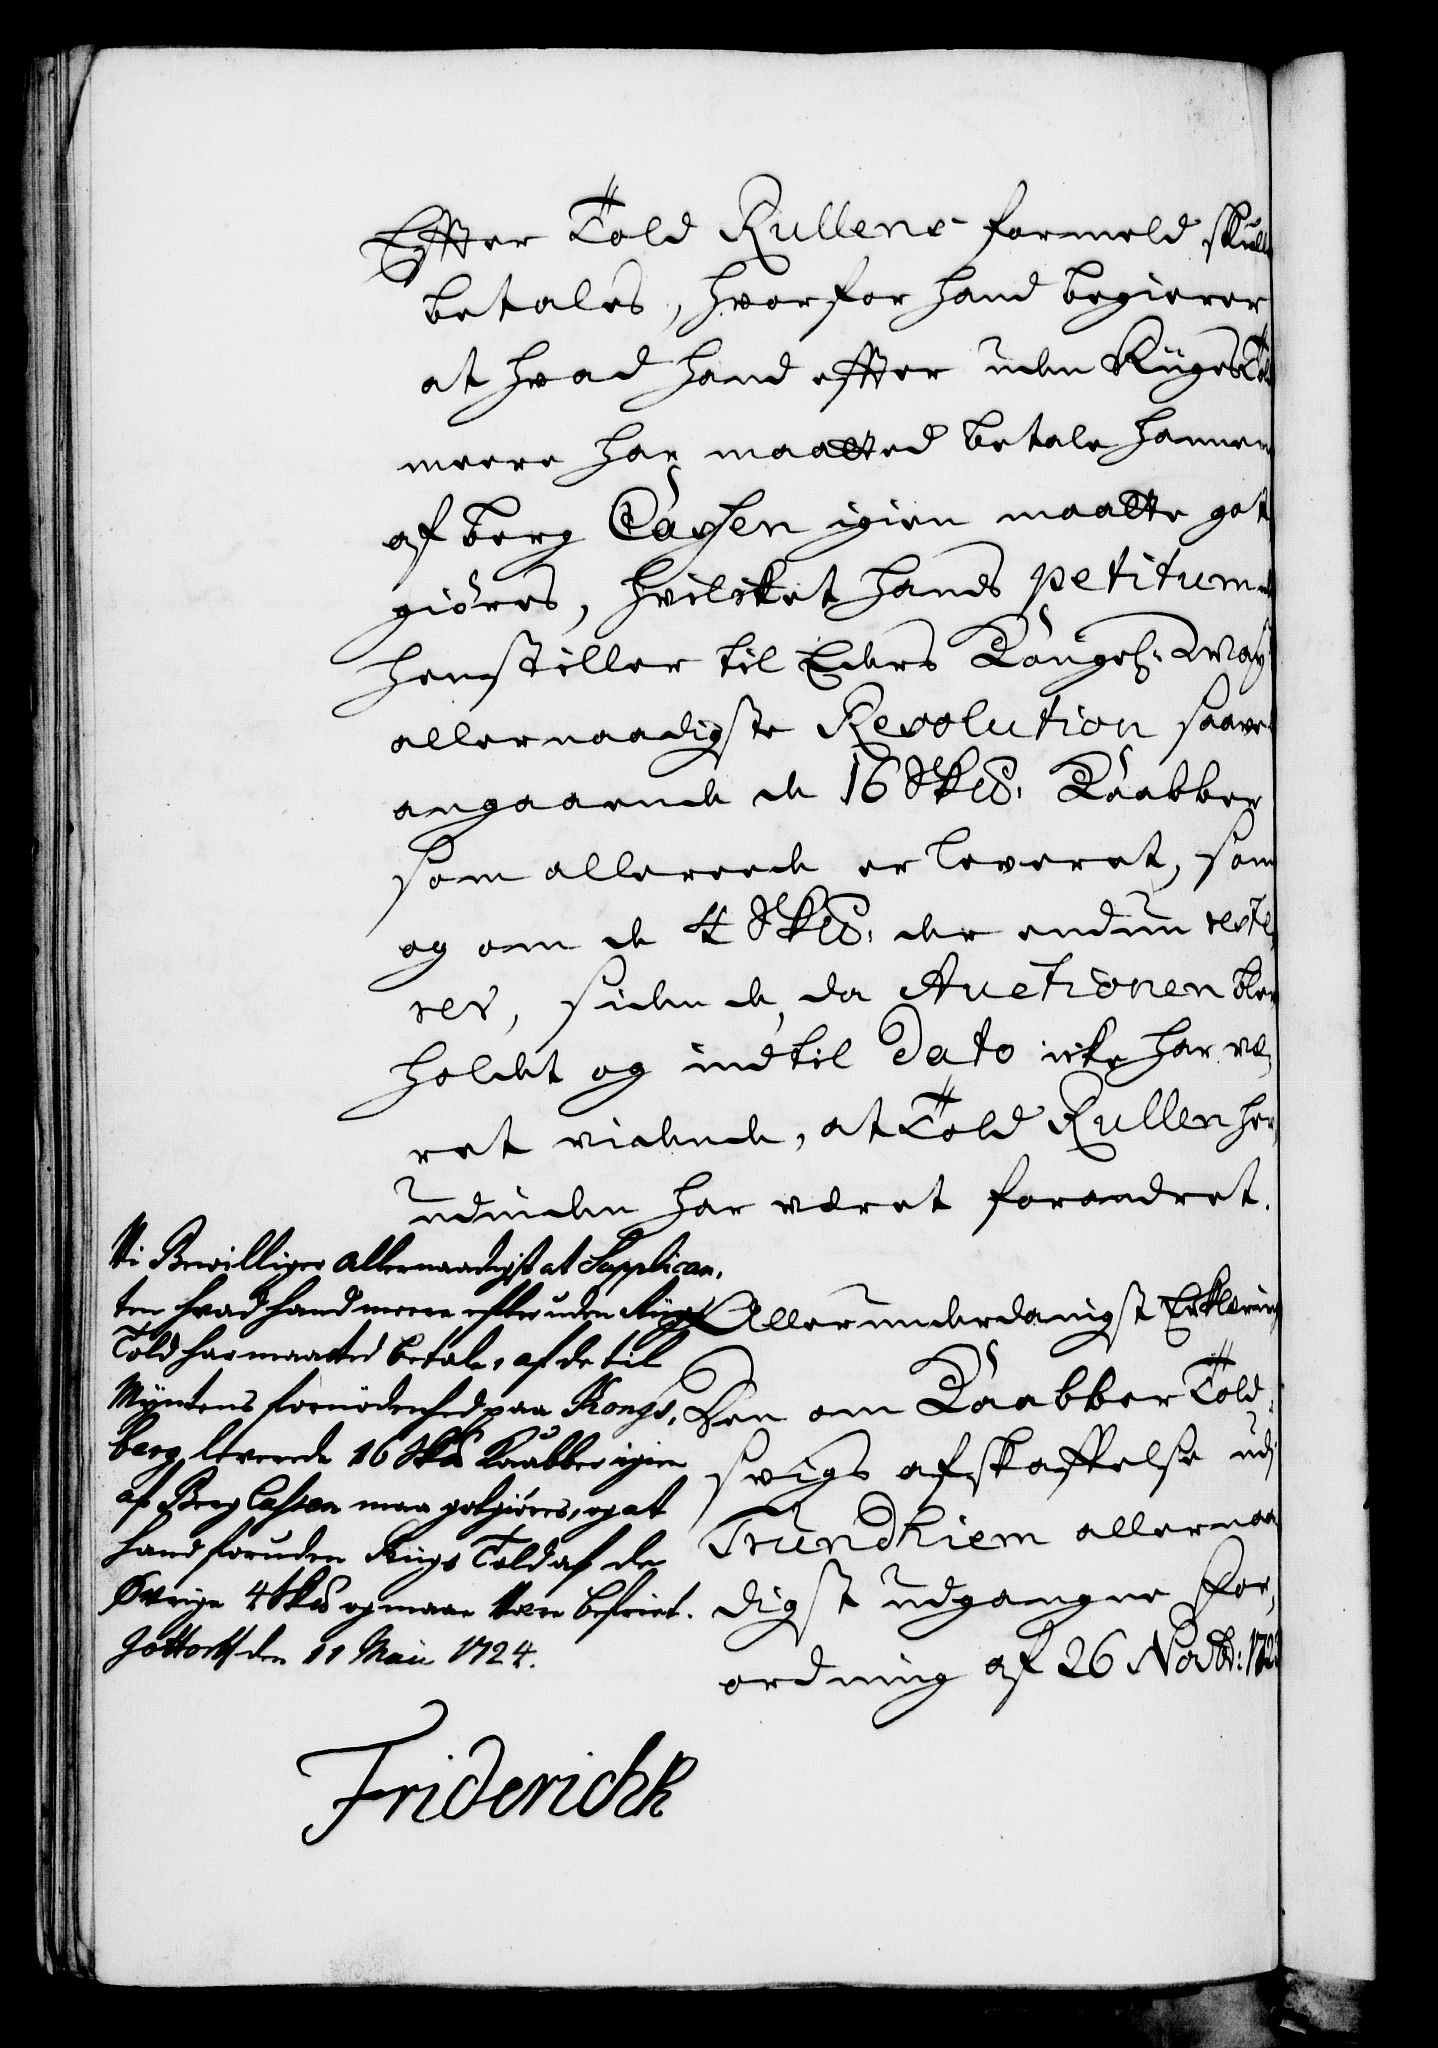 Effter Told Rullens formeld skulle
betales, hvorfor hand begierer
at hvad hand effter uden Riiges Told
meere har maatted betale hannem
af berg Cassen igien maatte got
giöres, hvilcket hands petitum
henstiller til Eders Kongel: May
allernaadigste Resolution saavel
angaaende de 16 Sk℔: Kaabber
som allereede er leveret, som
og om de 4 Sk℔: der endnu reste,
rer, siden de, da Auctionen blev
holdet og indtil Dato icke har væ,
ret vidende, at Told Rullen her,
udinden har været forandret.
Vi Bewilliger allernaadigst at Supplican,
ten hvad hand meere efter uden Riigs
Told har maatted betale, af de til
Myntens fornödenhed paa Kongs,
berg leverede 16 Sk℔ Kaabber igien
af Berg Cassen maa gotgiöres, og at
hand foruden Riigs Told af de
Øvrige 4 Sk℔ og maae Være befriet.
Gottorff den 11 Maii 1724.
Friderich R
Allerunderdanigst Erklæring
Den om Kaabber Told,
svigs afskaffelse udj
Trundhiem allernaa
digst udgangne For,
ordning af 26 Novbr: 1723